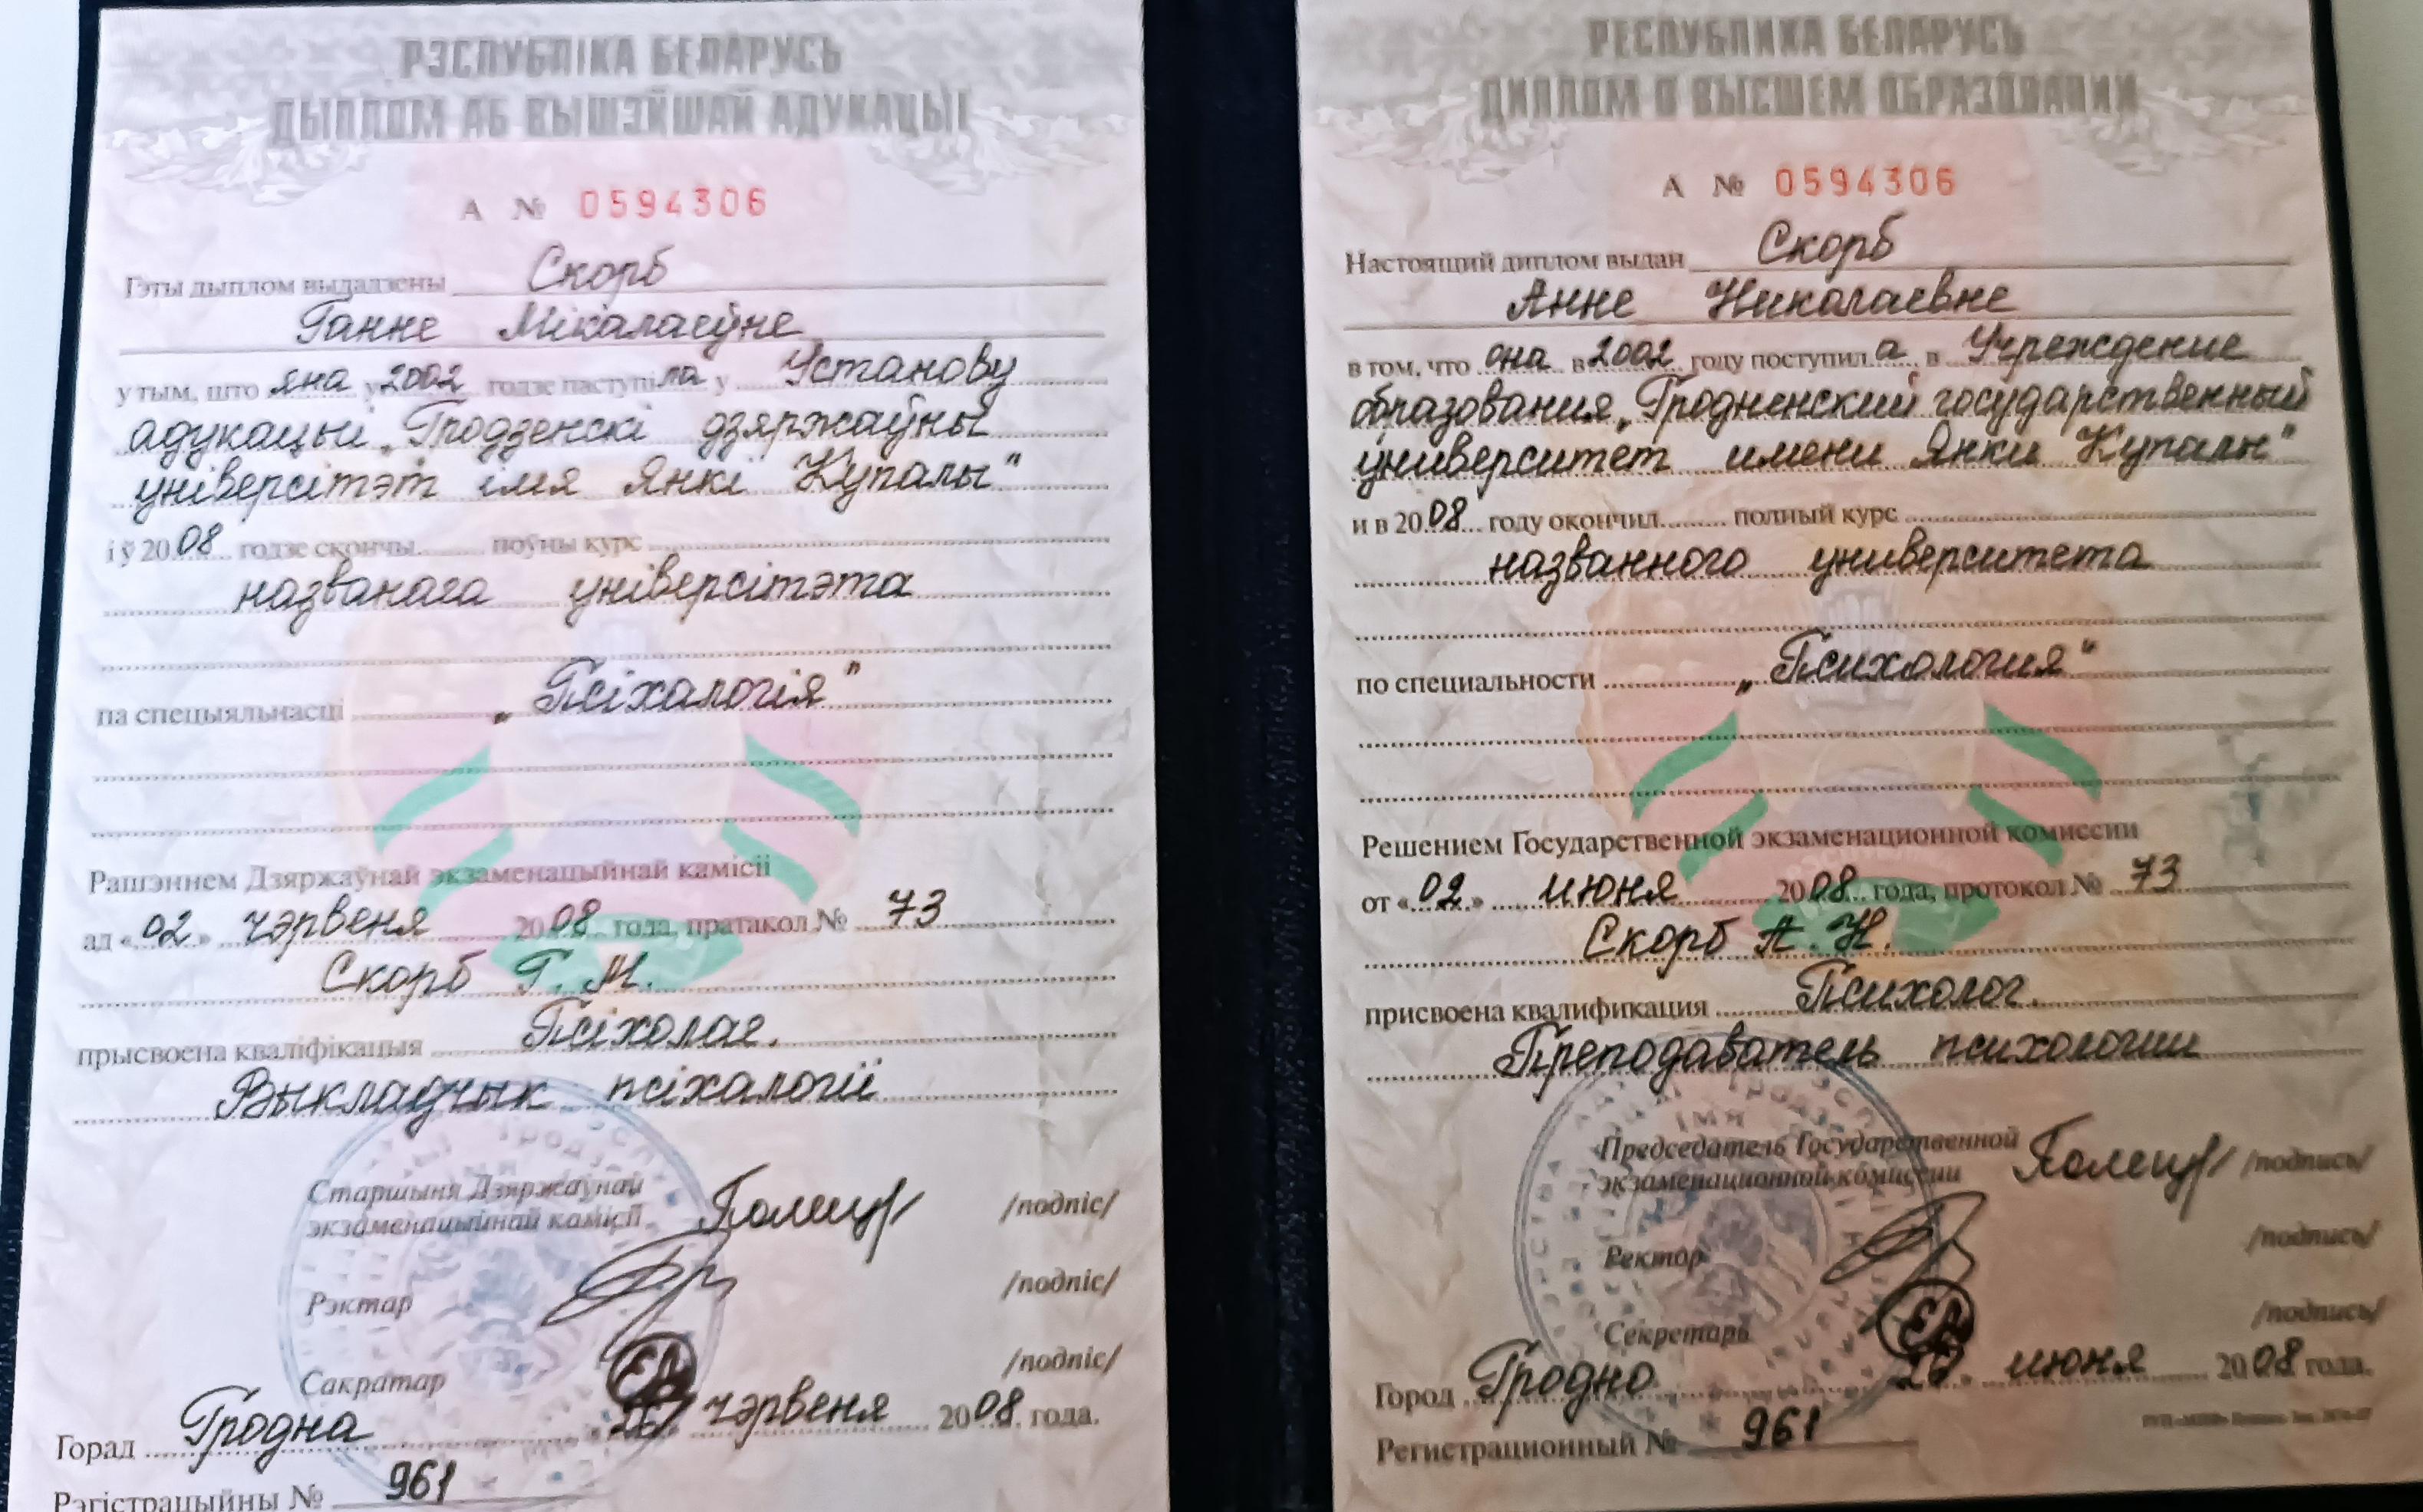 РЭСПУБЛІКА БЕЛАРУСЬ
ДЫПЛОМ АБ ВЫШЭЙШАЙ АДУКАЦЫІ
А № 0594306
Гэты дыплом выдадзены Скорб
Ганне Мікалаеўне
у тым, што яна у 2002 годзе паступіла у Установу
адукацыі „Гродзенскі дзяржаўны
універсітэт імя Янкі Купалы"
і ў 2008 годзе скончы поўны курс
названага універсітэта
па спецыяльнасці „Псіхалогія"
Рашэннем Дзяржаўнай экзаменацыйнай камісіі
ад «02» чэрвеня 2008 года, пратакол № 73
Скорб Г. М.
прысвоена кваліфікацыя Псіхолаг.
Выкладчык псіхалогіі
Старшыня Дзяржаўнай
экзаменацыйнай камісіі /подпіс/
Рэктар /подпіс/
Сакратар /подпіс/
Горад Гродна чэрвеня 2008 года.
Рэгістрацыйны № 961
РЕСПУБЛИКА БЕЛАРУСЬ
ДИПЛОМ О ВЫСШЕМ ОБРАЗОВАНИИ
А № 0594306
Настоящий диплом выдан Скорб
Анне Николаевне
в том, что она в 2002 году поступила в Учреждение
образования „Гродненский государственный
университет имени Янки Купалы"
и в 2008 году окончил полный курс
названного университета
по специальности „Психология"
Решением Государственной экзаменационной комиссии
от «02» июня 2008 года, протокол № 73
Скорб А. Н.
присвоена квалификация Психолог.
Преподаватель психологии
Председатель Государственной
экзаменационной комиссии /подпись/
Ректор /подпись/
Секретарь /подпись/
Город Гродно июня 2008 года.
Регистрационный № 961